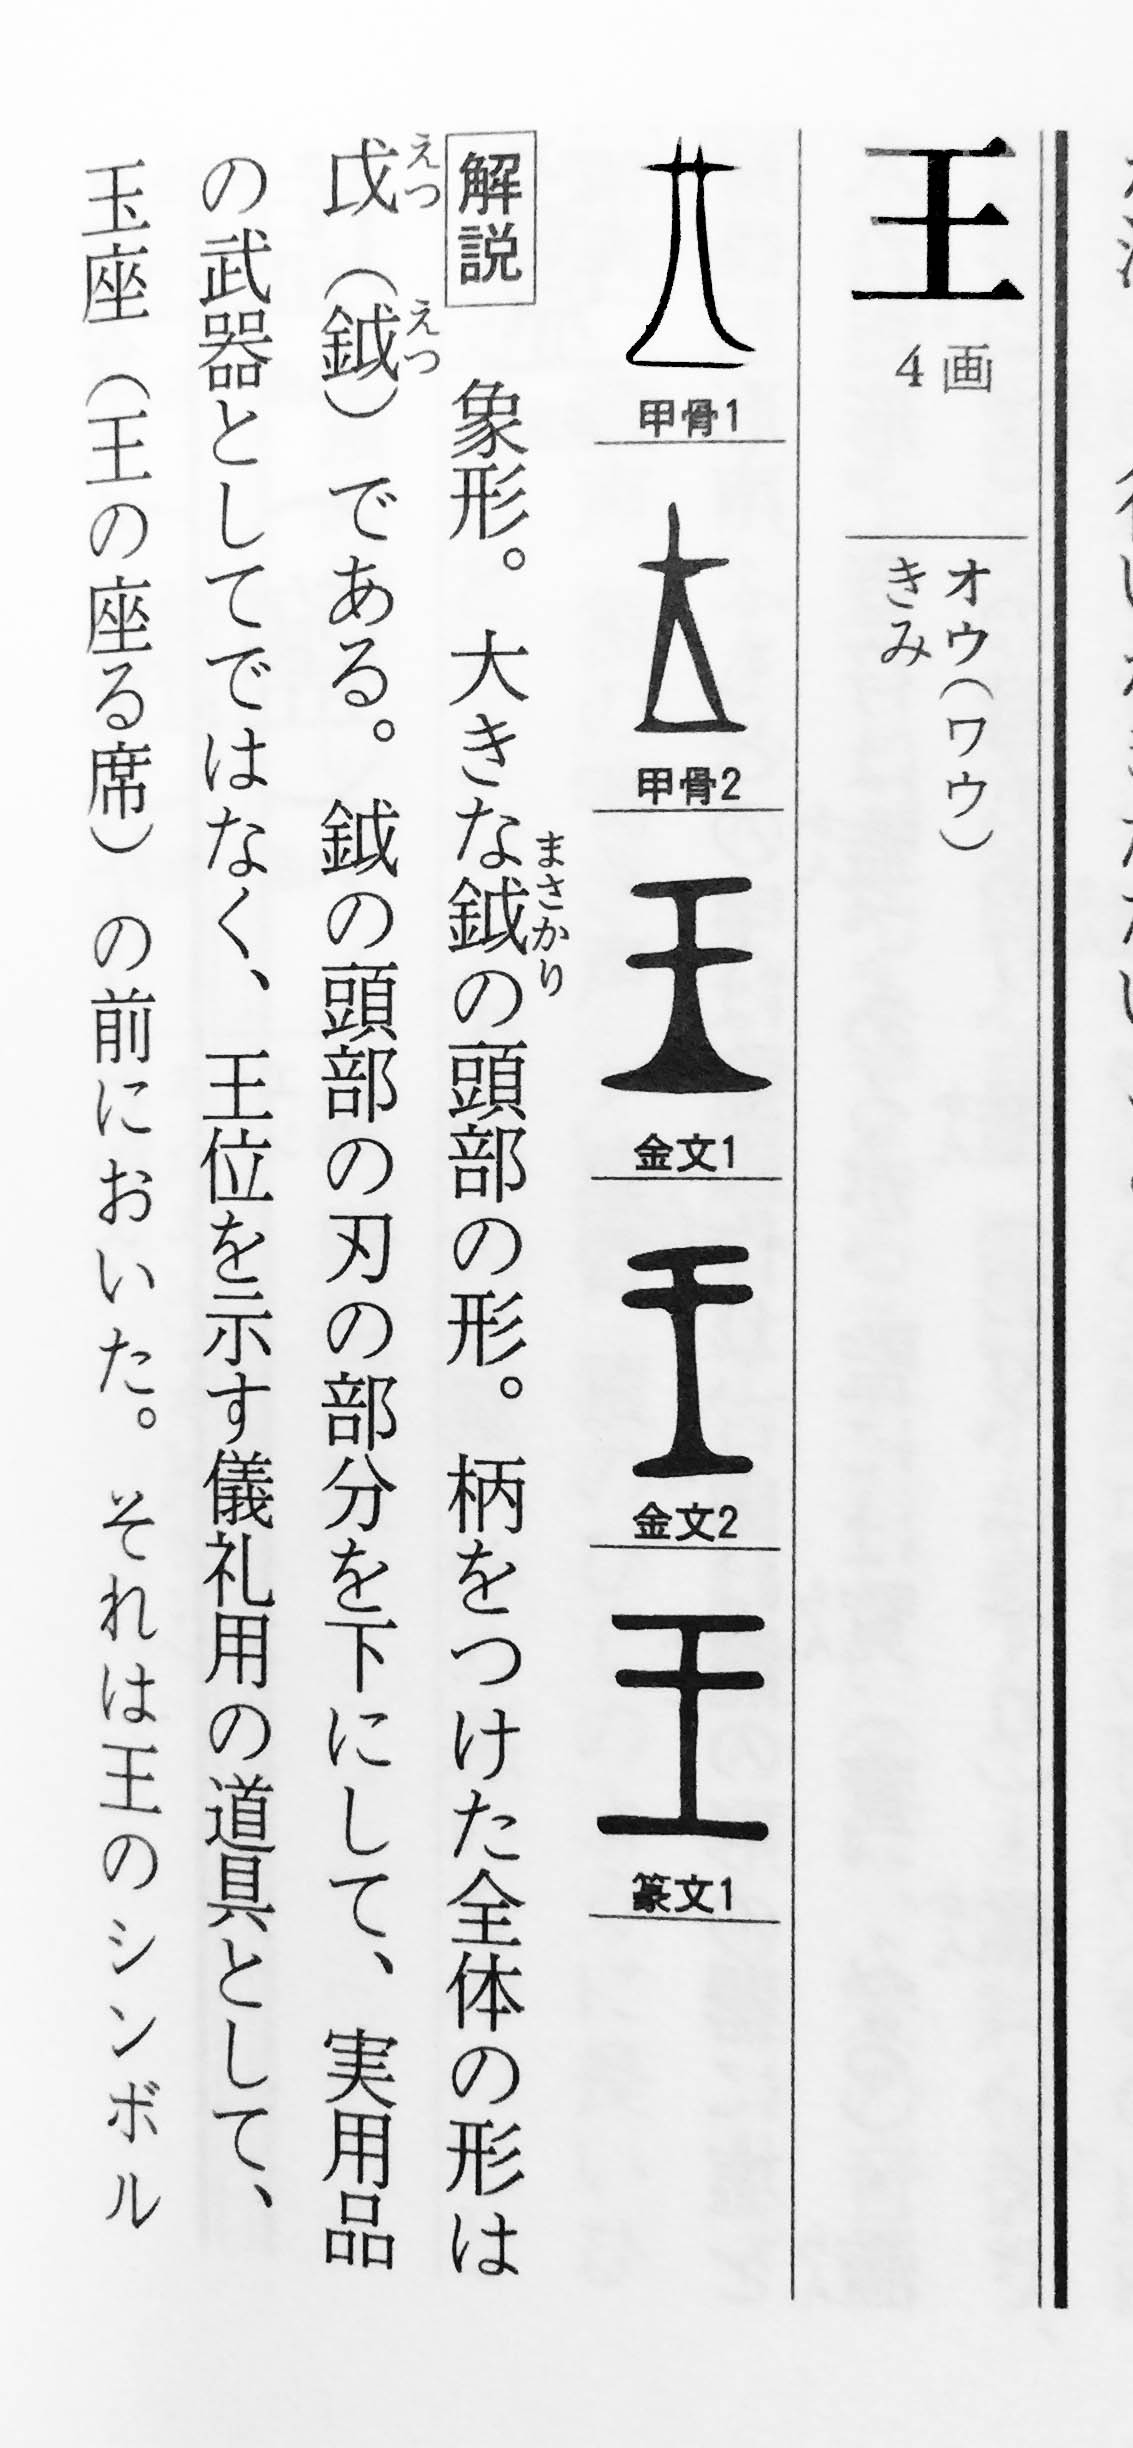 王
4画
オウ(ワウ)
きみ
甲骨1
甲骨2
金文1
金文2
篆文1
解説 象形。大きな鉞の頭部の形。柄をつけた全体の形は
まさかり
戉(鉞)である。鉞の頭部の刃の部分を下にして、実用品
えつ えつ
の武器としてではなく、王位を示す儀礼用の道具として、
玉座(王の座る席)の前においた。それは王のシンボル